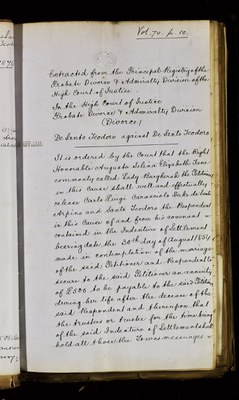 Vol. 70. p. 10.
Extracted from the Principal Registry of the
Probate Divorce & Admiralty Division of the
High Court of Justice.
In the High Court of Justice
Probate Divorce & Admiralty Division
(Divorce)
De Santo Teodoro against De Santo Teodoro
It is ordered by the Court that the Right
Honorable Augusta Selina Elizabeth
commonly called Lady Burghersh the Petitioner
in this Cause shall well and effectually
release Carlo Luigi Caracciolo Duke de Sant
Arpino and Santo Teodoro the Respondent
in this Cause of and from his covenant
contained in the Indenture of Settlement
bearing date the 30th day of August 1854
made in contemplation of the marriage
of the said Petitioner and Respondent to
secure to the said Petitioner an annuity
of £500 to be payable to the said Petitioner
during her life after the decease of the
said Respondent and thereupon that
the trustees or trustee for the time being
of the said Indenture of Settlement shall
hold all those the Towns messuages